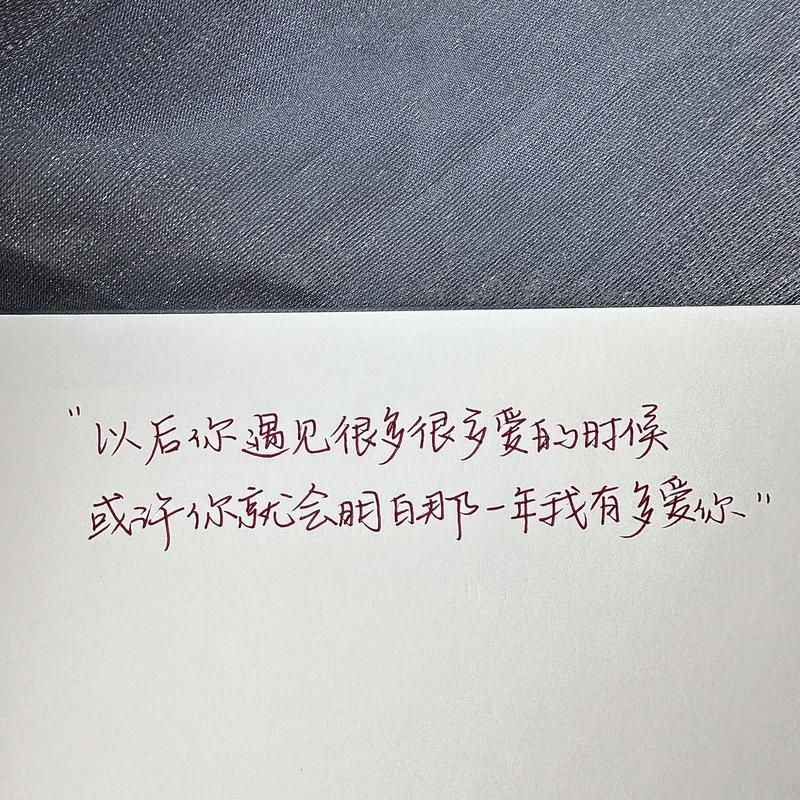 "以后你遇见很多很多爱的时候
或许你就会明白那一年我有多爱你"